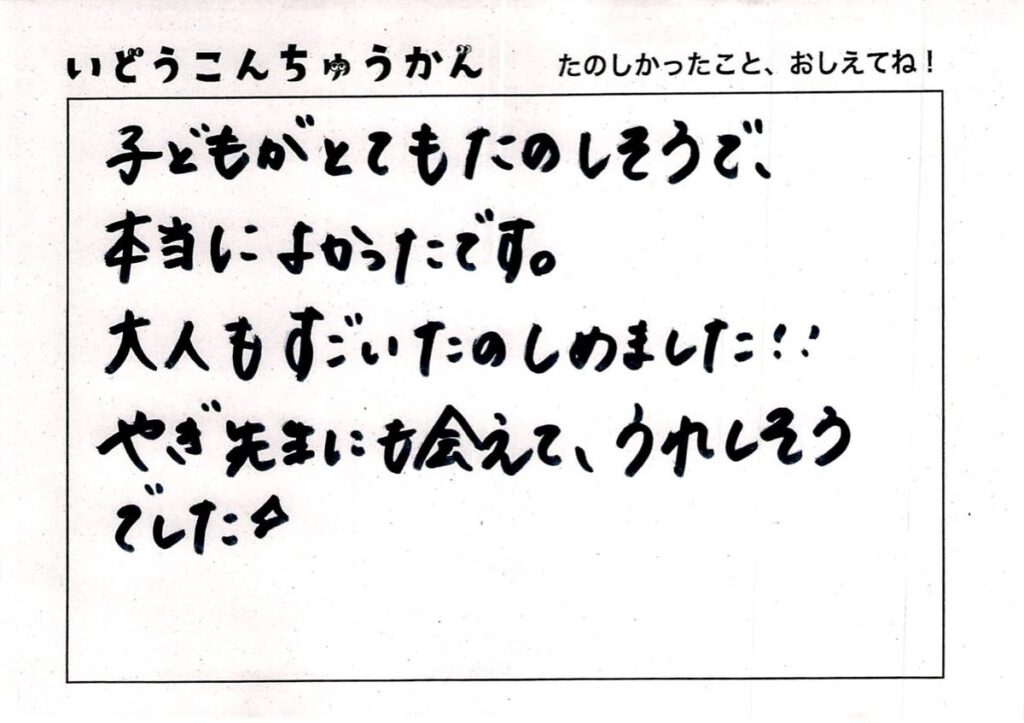 いどうこんちゅうかん　たのしかったこと、おしえてね！
子どもがとてもたのしそうで、
本当によかったです。
大人もすごいたのしめました!!
やぎ先生にも会えて、うれしそう
でした